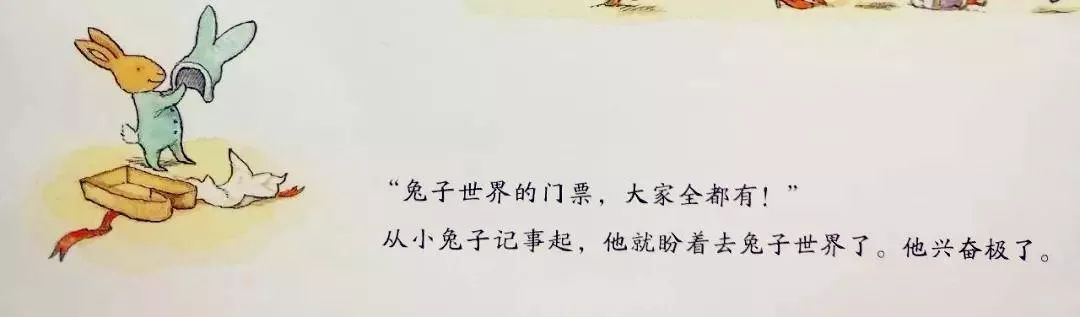 “兔子世界的门票，大家全都有！”
从小兔子记事起，他就盼着去兔子世界了。他兴奋极了。